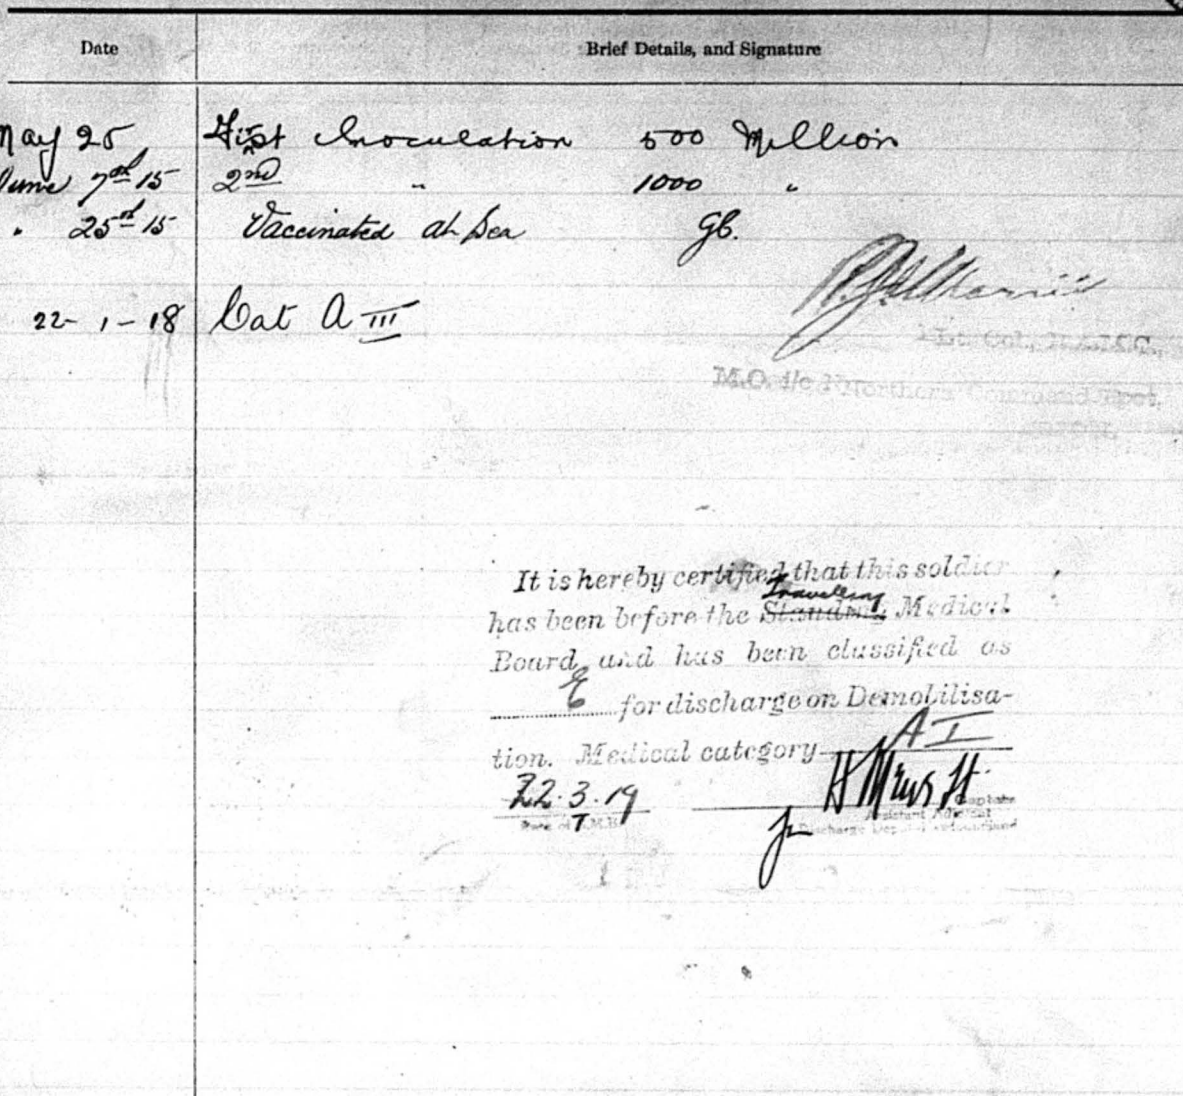 Date Brief Details, and Signature
May 25 First Inoculation 500 Million
June 7th 15 2nd " 1000 "
" 25th 15 Vaccinated at Sea GB.
22-1-18 Cat A III
Lt. Col., R.A.M.C.,
M.O. i/c Northern Command Depot,
It is hereby certified that this soldier
Travelling
has been before the Standing Medical
Board and has been classified as
E for discharge on Demobilisa-
tion. Medical category A I
22.3.19
Captain
Date of T.M.B. Assistant Adjutant
for Discharge